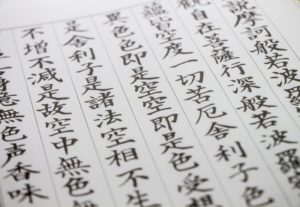 説摩訶般若波羅
観自在菩薩行深般若波
空度一切苦厄舎利子色
色色即是空空即是色受想
是舎利子是諸法空相不生
不増不減是故空中無色
意無色声香味